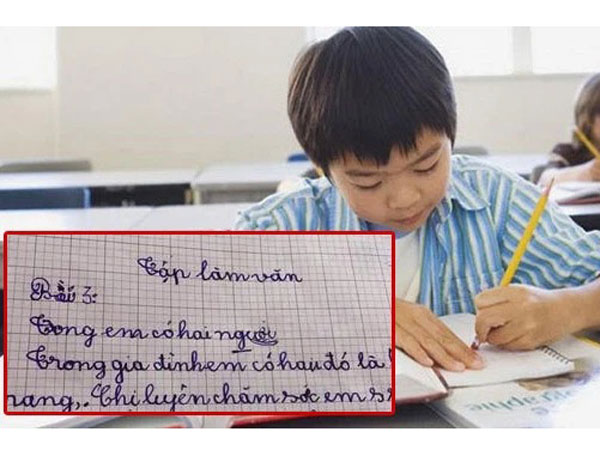 Tập làm văn
Bài 3:
Tong em có hai người
Trong gia đình em có hau đó là
rang,. Chị luyên chăm sóc em
graphic